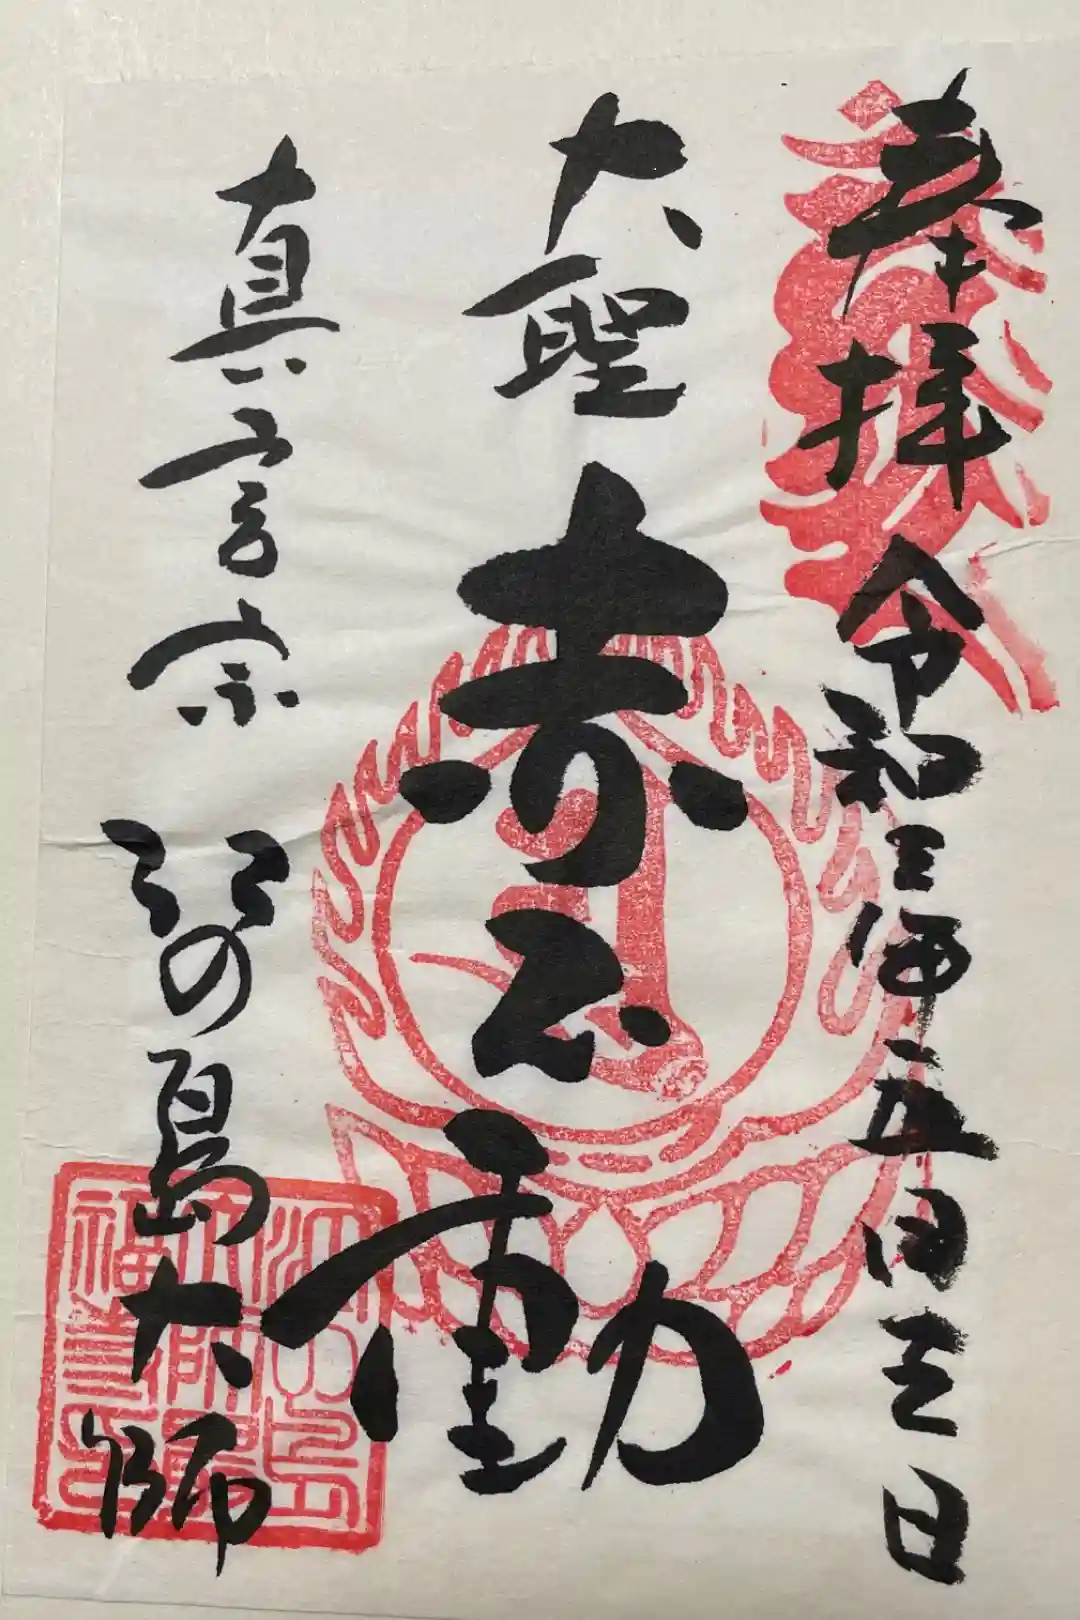 奉拝 令和三年五月三日
大聖 赤不動
真言宗 江の島大師